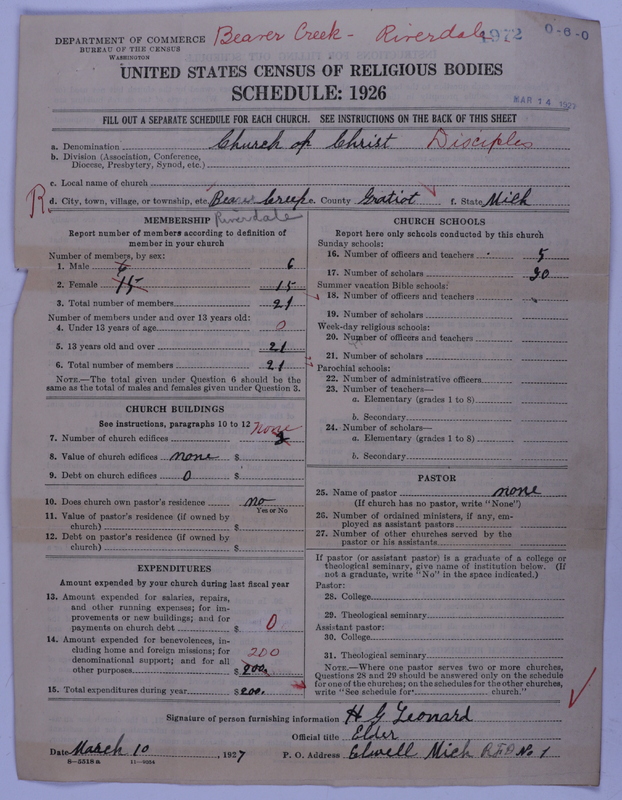 DEPARTMENT OF COMMERCE
BUREAU OF THE CENSUS
WASHINGTON
Beaver Creek - Riverdale
1972
0-6-0
UNITED STATES CENSUS OF RELIGIOUS BODIES
SCHEDULE: 1926
MAR 14 1927
FILL OUT A SEPARATE SCHEDULE FOR EACH CHURCH. SEE INSTRUCTIONS ON THE BACK OF THIS SHEET
a. Denomination Church of Christ Disciples
b. Division (Association, Conference, Diocese, Presbytery, Synod, etc.)
c. Local name of church
R
d. City, town, village, or township, etc. Beaver Creek e. County Gratiot f. State Mich
Riverdale
MEMBERSHIP
Report number of members according to definition of member in your church
Number of members, by sex:
1. Male 6 6
2. Female 15 15
3. Total number of members 21
Number of members under and over 13 years old:
4. Under 13 years of age 0
5. 13 years old and over 21
6. Total number of members 21
NOTE.—The total given under Question 6 should be the same as the total of males and females given under Question 3.
CHURCH BUILDINGS
See instructions, paragraphs 10 to 12
none
7. Number of church edifices
8. Value of church edifices none $
9. Debt on church edifices 0 $
10. Does church own pastor's residence no
Yes or No
11. Value of pastor's residence (if owned by church) $
12. Debt on pastor's residence (if owned by church) $
EXPENDITURES
Amount expended by your church during last fiscal year
13. Amount expended for salaries, repairs, and other running expenses; for improvements or new buildings; and for payments on church debt $ 0
14. Amount expended for benevolences, including home and foreign missions; for denominational support; and for all other purposes $ 200.
200
15. Total expenditures during year $ 200.
CHURCH SCHOOLS
Report here only schools conducted by this church
Sunday schools:
16. Number of officers and teachers 5
17. Number of scholars 30
Summer vacation Bible schools:
18. Number of officers and teachers
19. Number of scholars
Week-day religious schools:
20. Number of officers and teachers
21. Number of scholars
Parochial schools:
22. Number of administrative officers
23. Number of teachers—
a. Elementary (grades 1 to 8)
b. Secondary
24. Number of scholars—
a. Elementary (grades 1 to 8)
b. Secondary
PASTOR
25. Name of pastor none
(If church has no pastor, write "None")
26. Number of ordained ministers, if any, employed as assistant pastors
27. Number of other churches served by the pastor or his assistants
If pastor (or assistant pastor) is a graduate of a college or theological seminary, give name of institution below. (If not a graduate, write "No" in the space indicated.)
Pastor:
28. College
29. Theological seminary
Assistant pastor:
30. College
31. Theological seminary
NOTE.—Where one pastor serves two or more churches, Questions 28 and 29 should be answered only on the schedule for one of the churches; on the schedules for the other churches, write "See schedule for church."
Signature of person furnishing information H G Leonard
Official title Elder
Date March 10, 1927 P. O. Address Elwell Mich RFD No 1
8-5518 a 11-9054